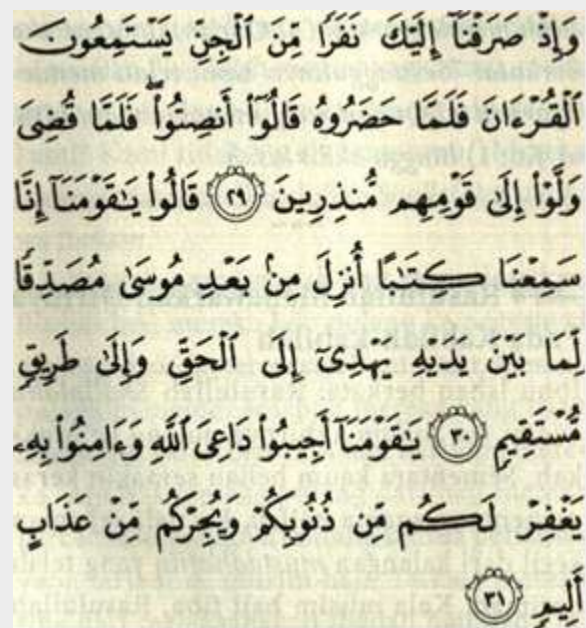 وَإِذْ صَرَفْنَآ إِلَيْكَ نَفَرًا مِّنَ ٱلْجِنِّ يَسْتَمِعُونَ
ٱلْقُرْءَانَ فَلَمَّا حَضَرُوهُ قَالُوٓا۟ أَنصِتُوا۟ ۖ فَلَمَّا قُضِىَ
وَلَّوْا۟ إِلَىٰ قَوْمِهِم مُّنذِرِينَ ﴿٢٩﴾ قَالُوا۟ يَـٰقَوْمَنَآ إِنَّا
سَمِعْنَا كِتَـٰبًا أُنزِلَ مِنۢ بَعْدِ مُوسَىٰ مُصَدِّقًا
لِّمَا بَيْنَ يَدَيْهِ يَهْدِىٓ إِلَى ٱلْحَقِّ وَإِلَىٰ طَرِيقٍ
مُّسْتَقِيمٍ ﴿٣٠﴾ يَـٰقَوْمَنَآ أَجِيبُوا۟ دَاعِىَ ٱللَّهِ وَءَامِنُوا۟ بِهِۦ
يَغْفِرْ لَكُم مِّن ذُنُوبِكُمْ وَيُجِرْكُم مِّنْ عَذَابٍ
أَلِيمٍ ﴿٣١﴾